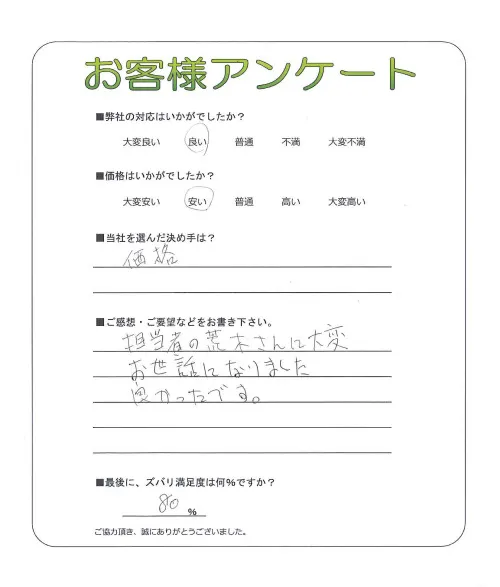 お客様アンケート
■弊社の対応はいかがでしたか？
大変良い 良い 普通 不満 大変不満
■価格はいかがでしたか？
大変安い 安い 普通 高い 大変高い
■当社を選んだ決め手は？
価格
■ご感想・ご要望などをお書き下さい。
担当者の荒木さんに大変
お世話になりました
良かったです。
■最後に、ズバリ満足度は何％ですか？
80 %
ご協力頂き、誠にありがとうございました。